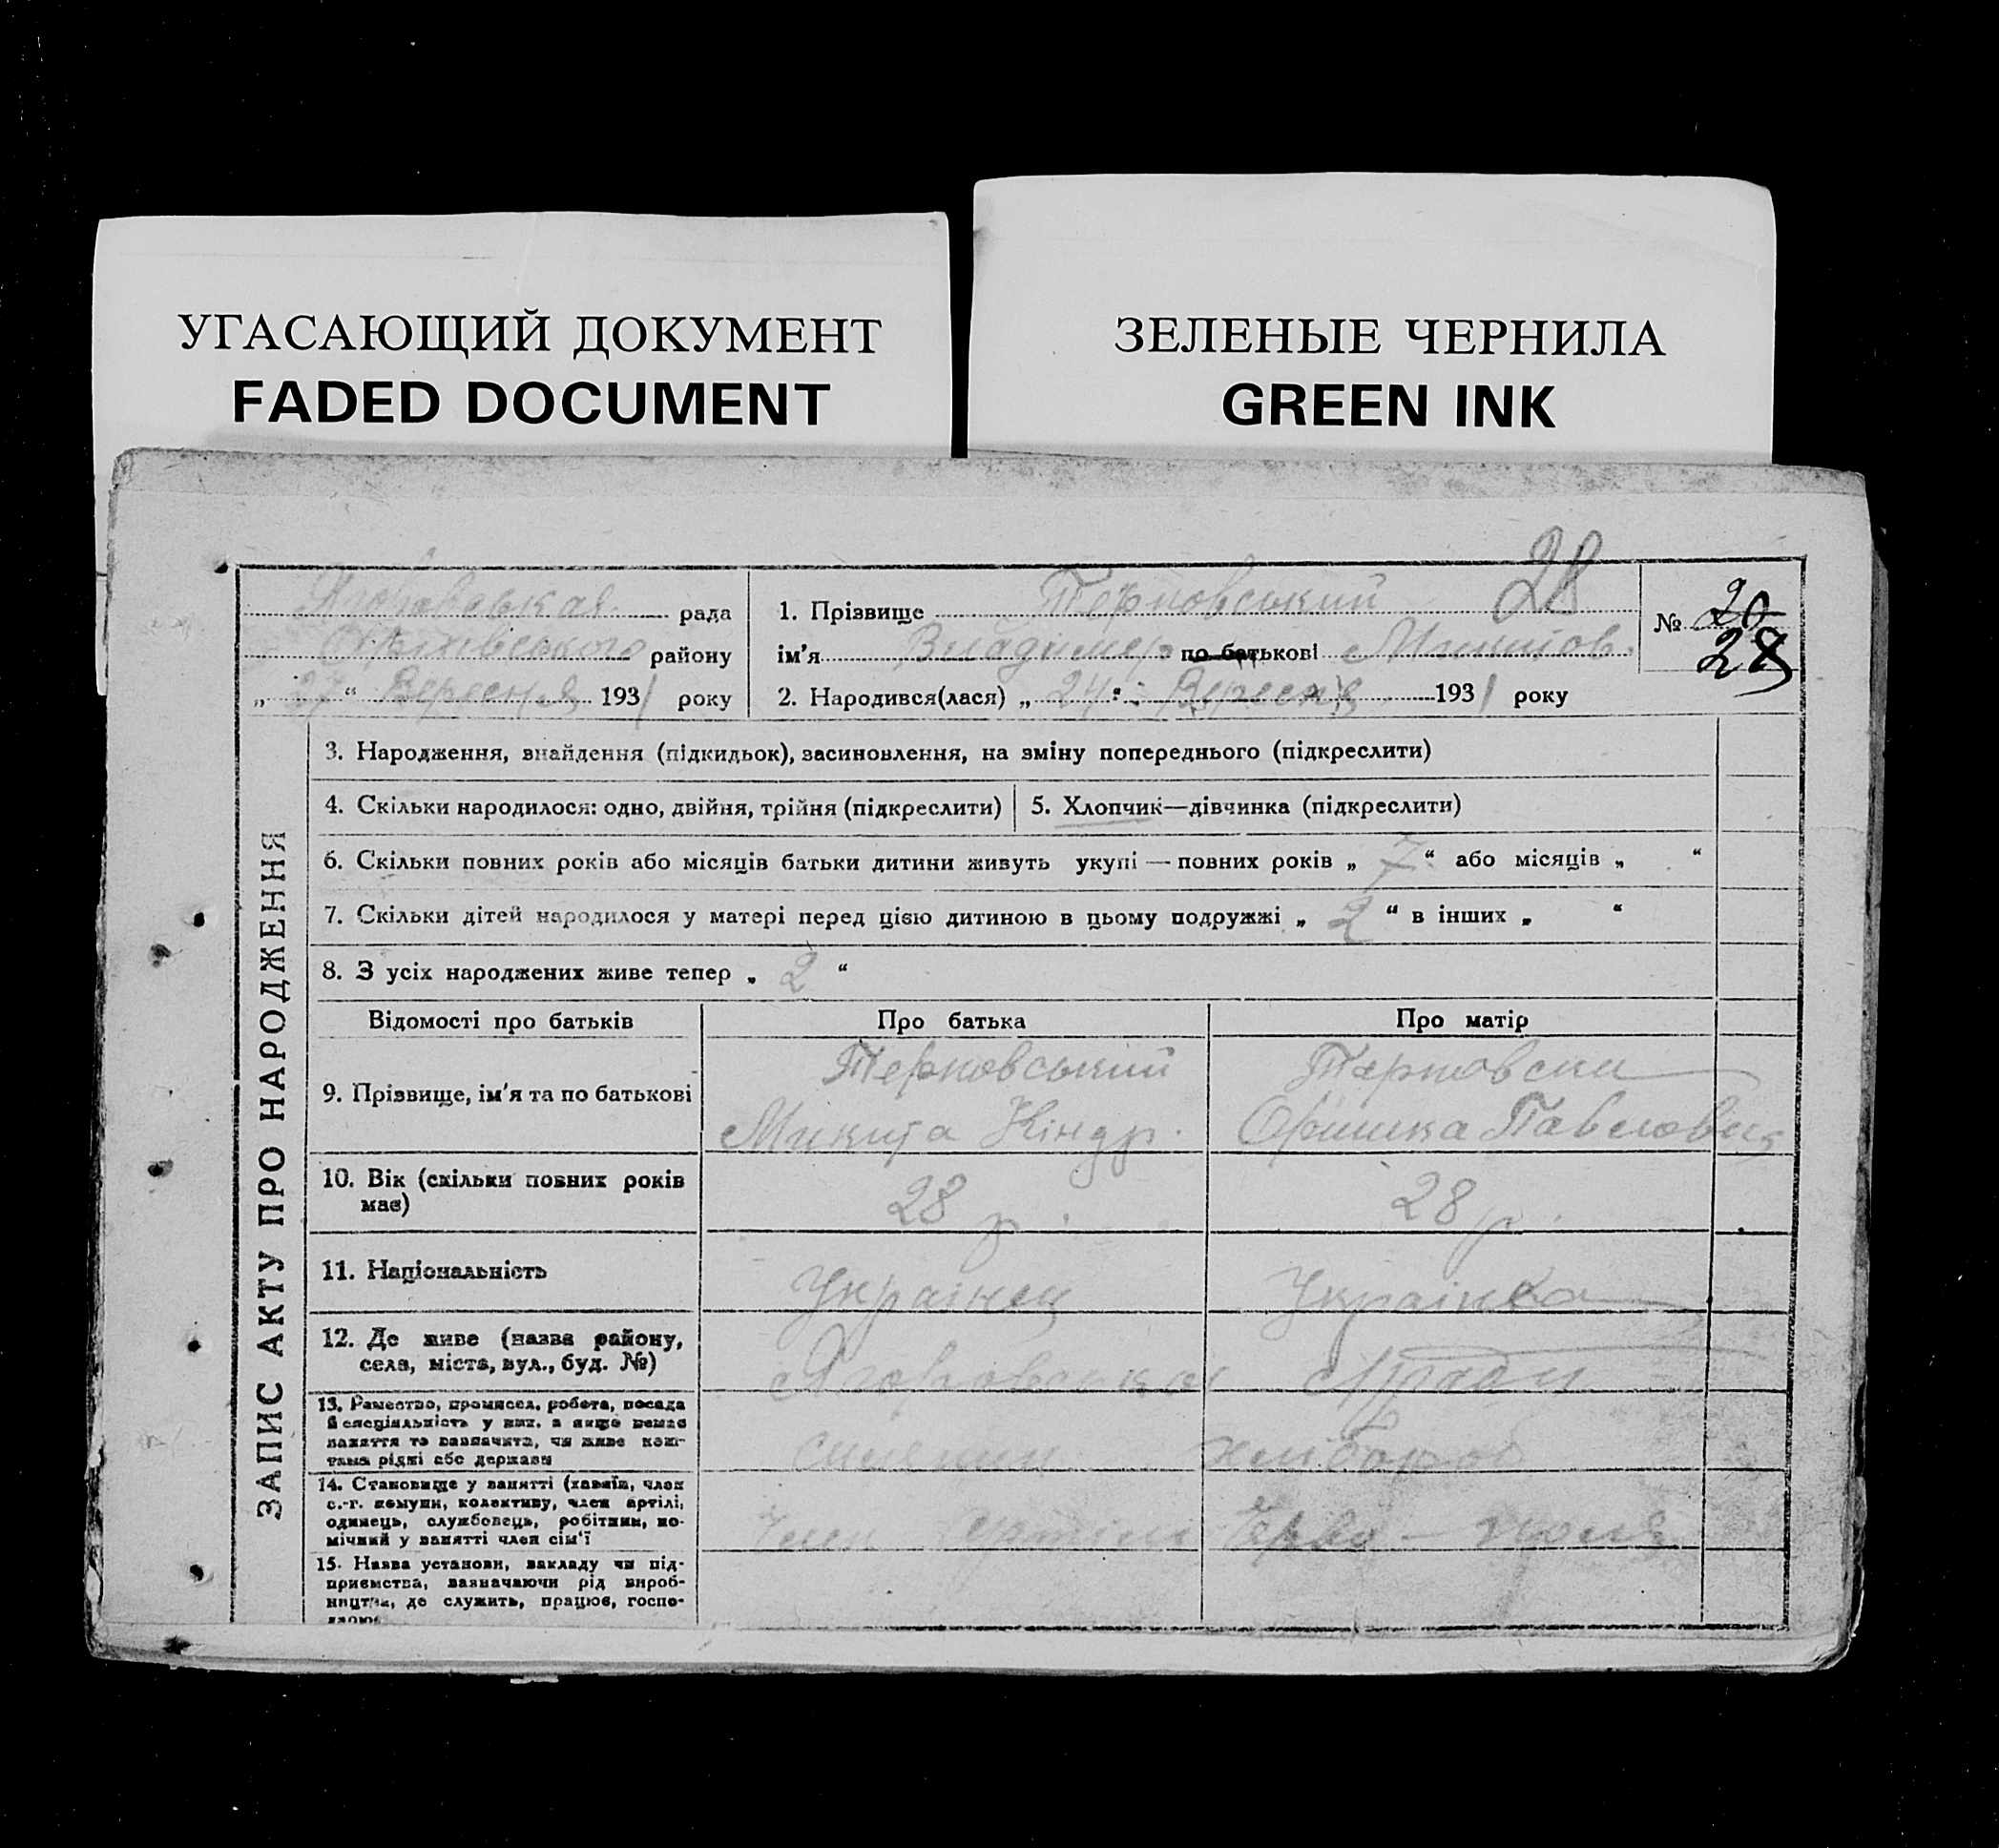 УГАСАЮЩИЙ ДОКУМЕНТ
FADED DOCUMENT
ЗЕЛЕНЫЕ ЧЕРНИЛА
GREEN INK
28
рада
району
„ 27 “ Вересня 1931 року
1. Прізвище Терновський
ім'я Владімер по батькові Микитов.
2. Народився(лася) „ 24 “ Вересня 1931 року
№ 20
28
ЗАПИС АКТУ ПРО НАРОДЖЕННЯ
3. Народження, внайдення (підкидьок), засиновлення, на зміну попереднього (підкреслити)
4. Скільки народилося: одно, двійня, трійня (підкреслити)
5. Хлопчик—дівчинка (підкреслити)
6. Скільки повних років або місяців батьки дитини живуть укупі — повних років „ 7 “ або місяців „ “
7. Скільки дітей народилося у матері перед цією дитиною в цьому подружжі „ 2 “ в інших „ “
8. З усіх народжених живе тепер „ 2 “
Відомості про батьків
Про батька
Про матір
9. Прізвище, ім'я та по батькові
Терновський
Микита Кіндр.
Терновска
Оришка Павловна
10. Вік (скільки повних років
має)
28 р.
28 р.
11. Національність
Українец
Українка
12. Де живе (назва району,
села, міста, вул., буд. №)
13. Ремество, промисел, робота, посада
й спеціяльність у них, а якщо немає
заняття то зазначити, чи живе кош-
тами рідні або держави
хлібороб
14. Становище у занятті (хазяїн, член
с.-г. комуни, колективу, член артілі,
одинець, службовець, робітник, по-
мічний у занятті член сім'ї
Член артілі
15. Назва установи, закладу чи під-
приємства, зазначаючи рід вироб-
ництва, де служить, працює, госпо-